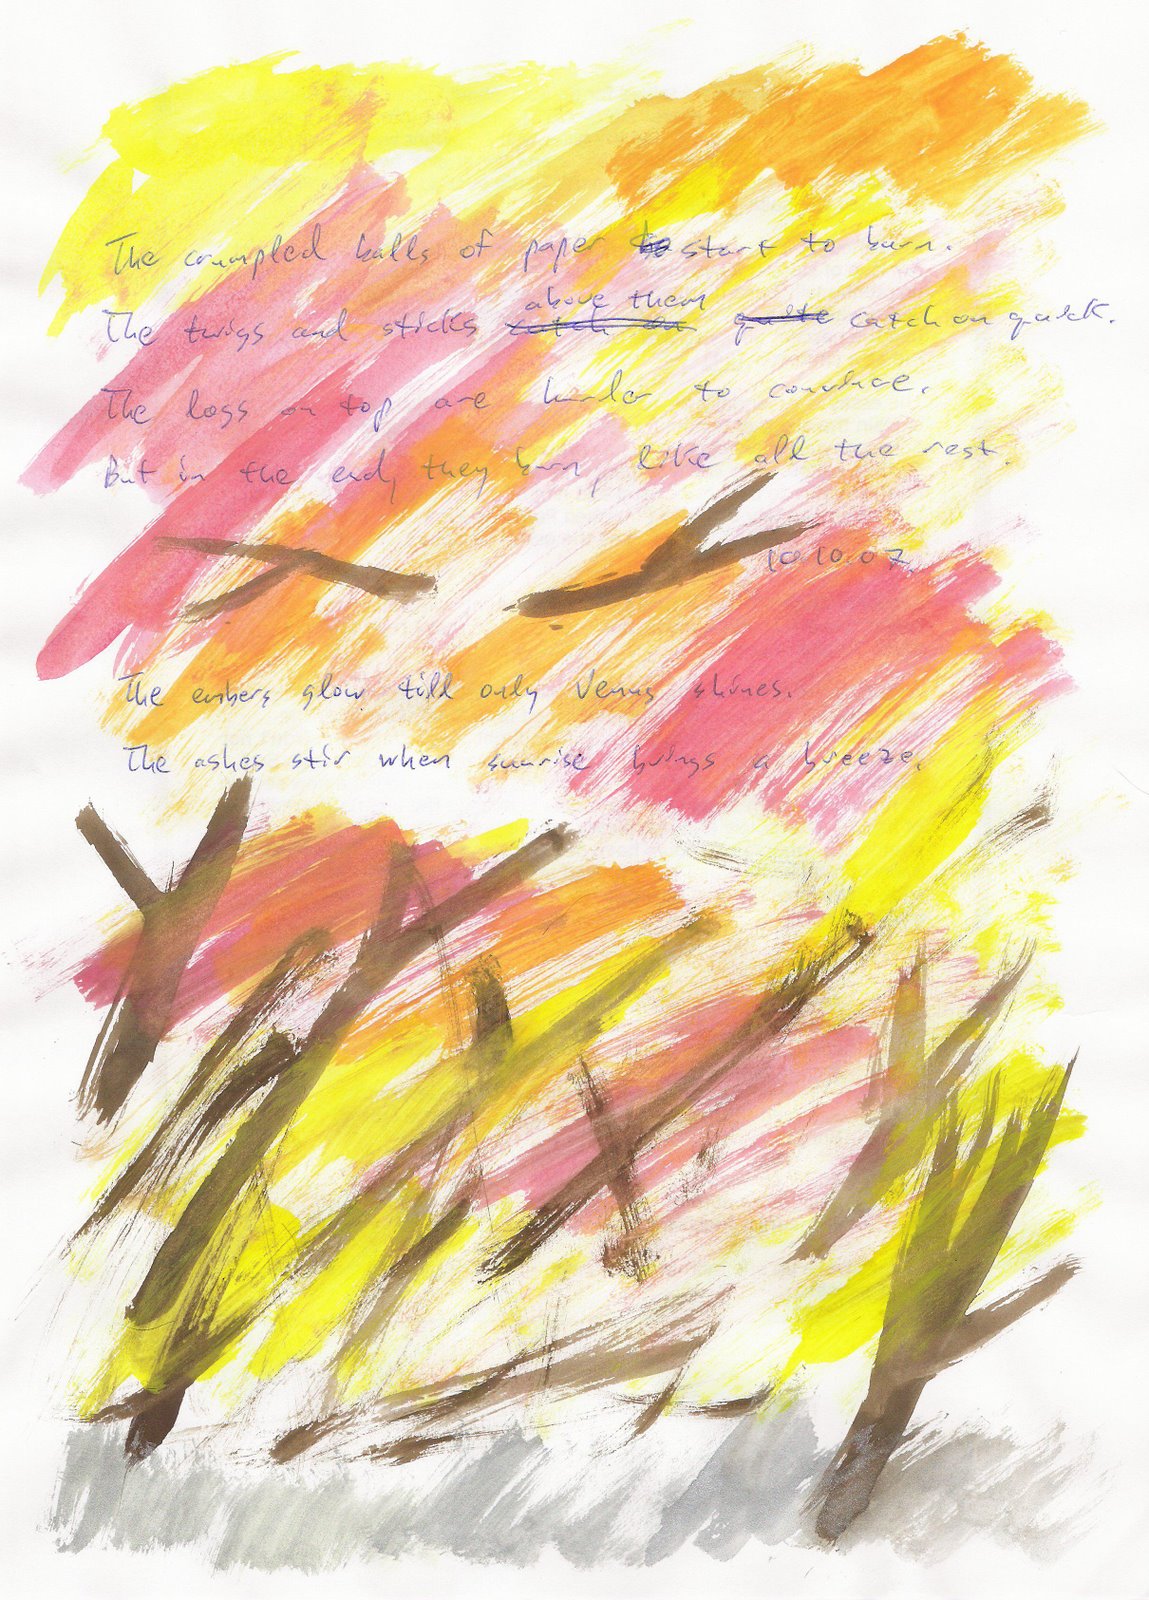 The crumpled balls of paper to start to burn.
above them
The twigs and sticks catch on quite catch on quick.
The logs on top are harder to convince.
But in the end, they burn, like all the rest.
10.10.07.
The embers glow till only Venus shines.
The ashes stir when sunrise brings a breeze.